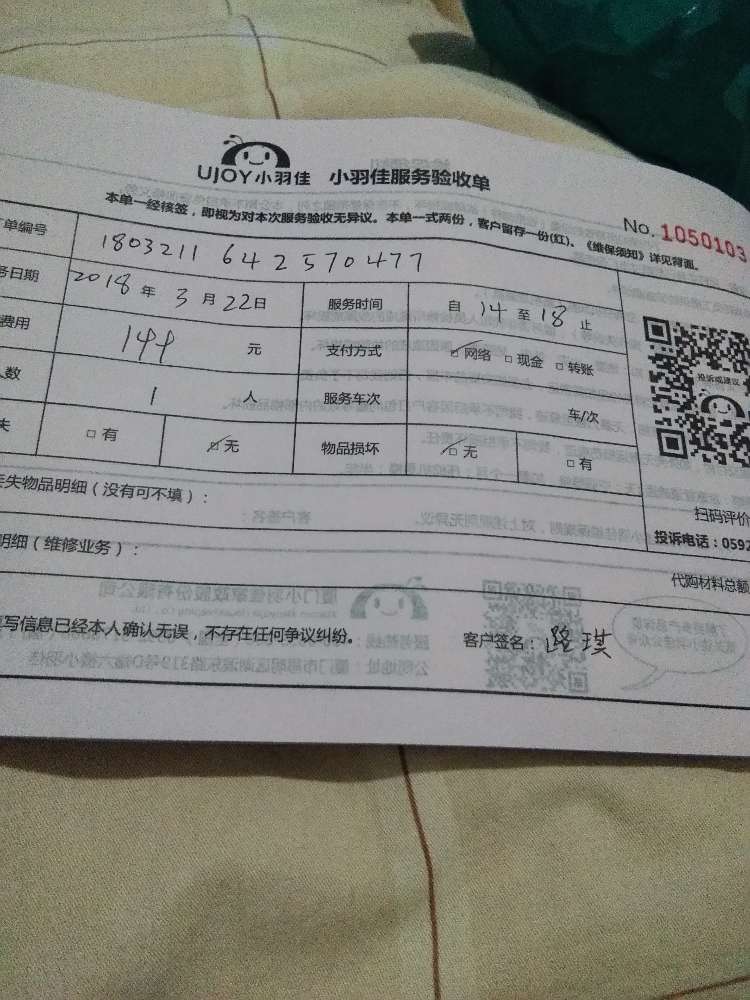 UJOY小羽佳 小羽佳服务验收单
本单一经核签，即视为对本次服务验收无异议。本单一式两份，客户留存一份(红)、《维保须知》详见背面。
No. 1050103
单编号 1803211 642570477
务日期 2018 年 3 月 22 日 服务时间 自 14 至 18 止
费用 144 元 支付方式 ☑网络 □现金 □转账
人数 1 人 服务车次 车/次
失 □有 ☑无 物品损坏 ☑无 □有
投诉或建议
失物品明细（没有可不填）：
扫码评价
投诉电话：0592
明细（维修业务）：
代购材料总额
写信息已经本人确认无误，不存在任何争议纠纷。
客户签名：路琪